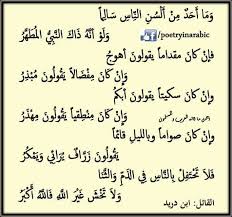 وَمَا أَحَدٌ مِنْ أَلْسُنِ النَّاسِ سَالِماً
وَلَوْ أَنَّهُ ذَاكَ النَّبِيُّ المُطَهَّرُ
f/poetryinarabic
فَإِنْ كَانَ مِقْدَاماً يَقُولُونَ أَهْوَجُ
وَإِنْ كَانَ مِفْضَالاً يَقُولُونَ مُبْذِرُ
وَإِنْ كَانَ سِكِّيتاً يَقُولُونَ أَبْكَمُ
وَإِنْ كَانَ مِنْطِقِياً يَقُولُونَ مِهْذَرُ
وَإِنْ كَانَ صَوَّاماً وَبِاللَّيلِ قَائماً
يَقُولُونَ زَرَّافٌ يُرَائِي وَيَمْكُرُ
فَلاَ تَحْتَفِلْ بِالنَّاسِ فِي الذَّمِّ وَالثَّنَا
وَلاَ تَخْشَ غَيْرَ اللَّهِ فَاللَّهُ أَكْبَرُ
القائل: ابن دريد